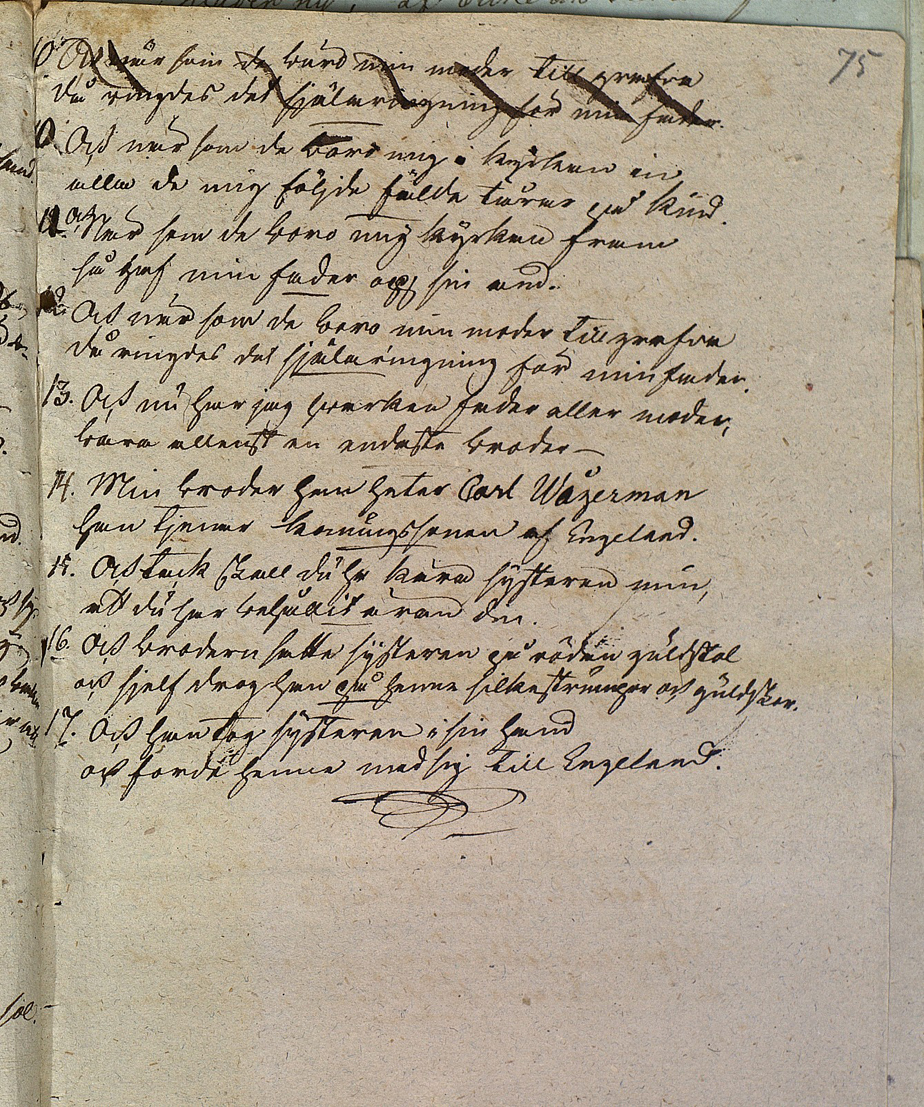 75
10 Och när som de buro min moder till grafva
då ringdes det själaringning för min fader.
10. Och när som de boro mig i kyrkan in
alla de mig följde fälde tårar på kind.
11. Och när som de boro mig kyrkan fram
så gaf min fader opp sin and.
12. Och när som de boro min moder till grafva
då ringdes det själaringning för min fader.
13. Och nu har jag hvarken fader eller moder,
bara allenast en endaste broder –
14. Min broder han heter Carl Wågerman
han tjenar konungssonen af Engeland.
15. Och tack skall du ha kära systeren min,
att du har behållit äran din.
16. Och brodern satte systeren på röden guldstol
och sjelf drog han på henne silkestrumpor och guldskor.
17. Och han tog systeren i sin hand
och förde henne med sig till Engeland.